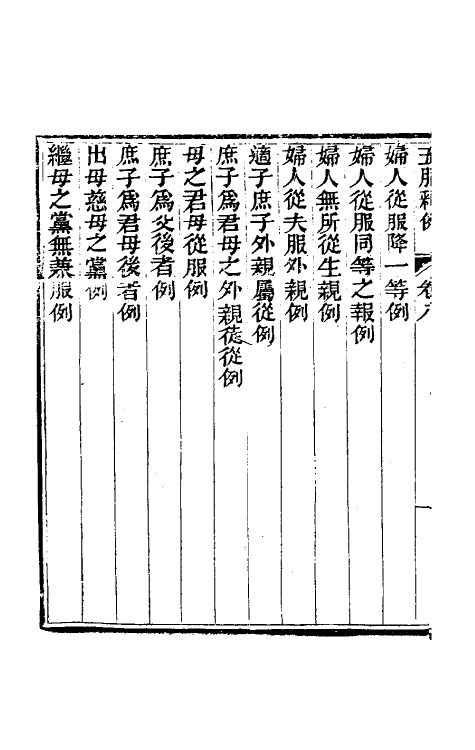 五服釋例 卷八
婦人從服降一等例
婦人從服同等之報例
婦人無所從生親例
婦人從夫服外親例
適子庶子外親屬從例
庶子爲君母之外親徒從例
母之君母從服例
庶子爲父後者例
庶子爲君母後者例
出母慈母之黨例
繼母之黨無兼服例